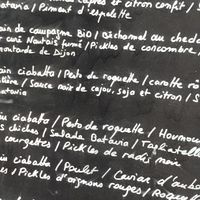 câpres et citron confit / S
Batavia / Piment d'espelette
ain de campagne Bio / Béchamel au ched
curé Nantais fumé / Pickles de concombre,
moutarde de Dijon
ain ciabatta / Pesto de roquette / carotte râ
/ Sauce noix de cajou, soja et citron / S
atavia
ciabatta / Pesto de roquette / Houmou
s chiches / Salade Batavia / Tagliatelle
courgettes / Pickles de radis noir
ciabatta / Poulet / Caviar d'aube
es / Pickles d'oignons rouges / Roque